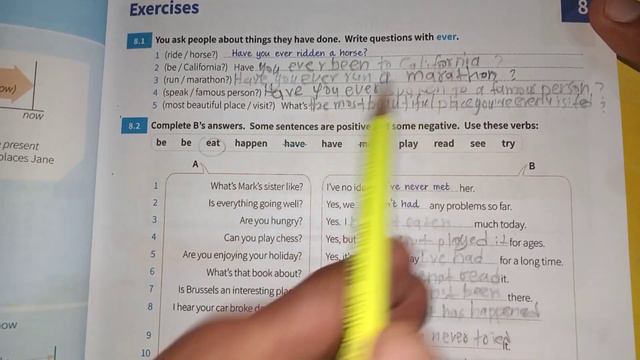 Exercises
8
8.1 You ask people about things they have done. Write questions with ever.
1 (ride / horse?) Have you ever ridden a horse?
2 (be / California?) Have you ever been to California ?
3 (run / marathon?) Have you ever run a marathon ?
4 (speak / famous person?) Have you ever to a famous person ?
5 (most beautiful place / visit?) What's the most beautiful place you've ever visited ?
now
8.2 Complete B's answers. Some sentences are positive some negative. Use these verbs:
be be eat happen have have play read see try
present
places Jane
A B
1 What's Mark's sister like? I've no never met her.
2 Is everything going well? Yes, we had any problems so far.
3 Are you hungry? Yes. I eaten much today.
4 Can you play chess? Yes, but played it for ages.
5 Are you enjoying your holiday? Yes, I've had for a long time.
6 What's that book about? not read it.
7 Is Brussels an interesting been there.
8 I hear your car broke has happened
now
9 never tried it.
10